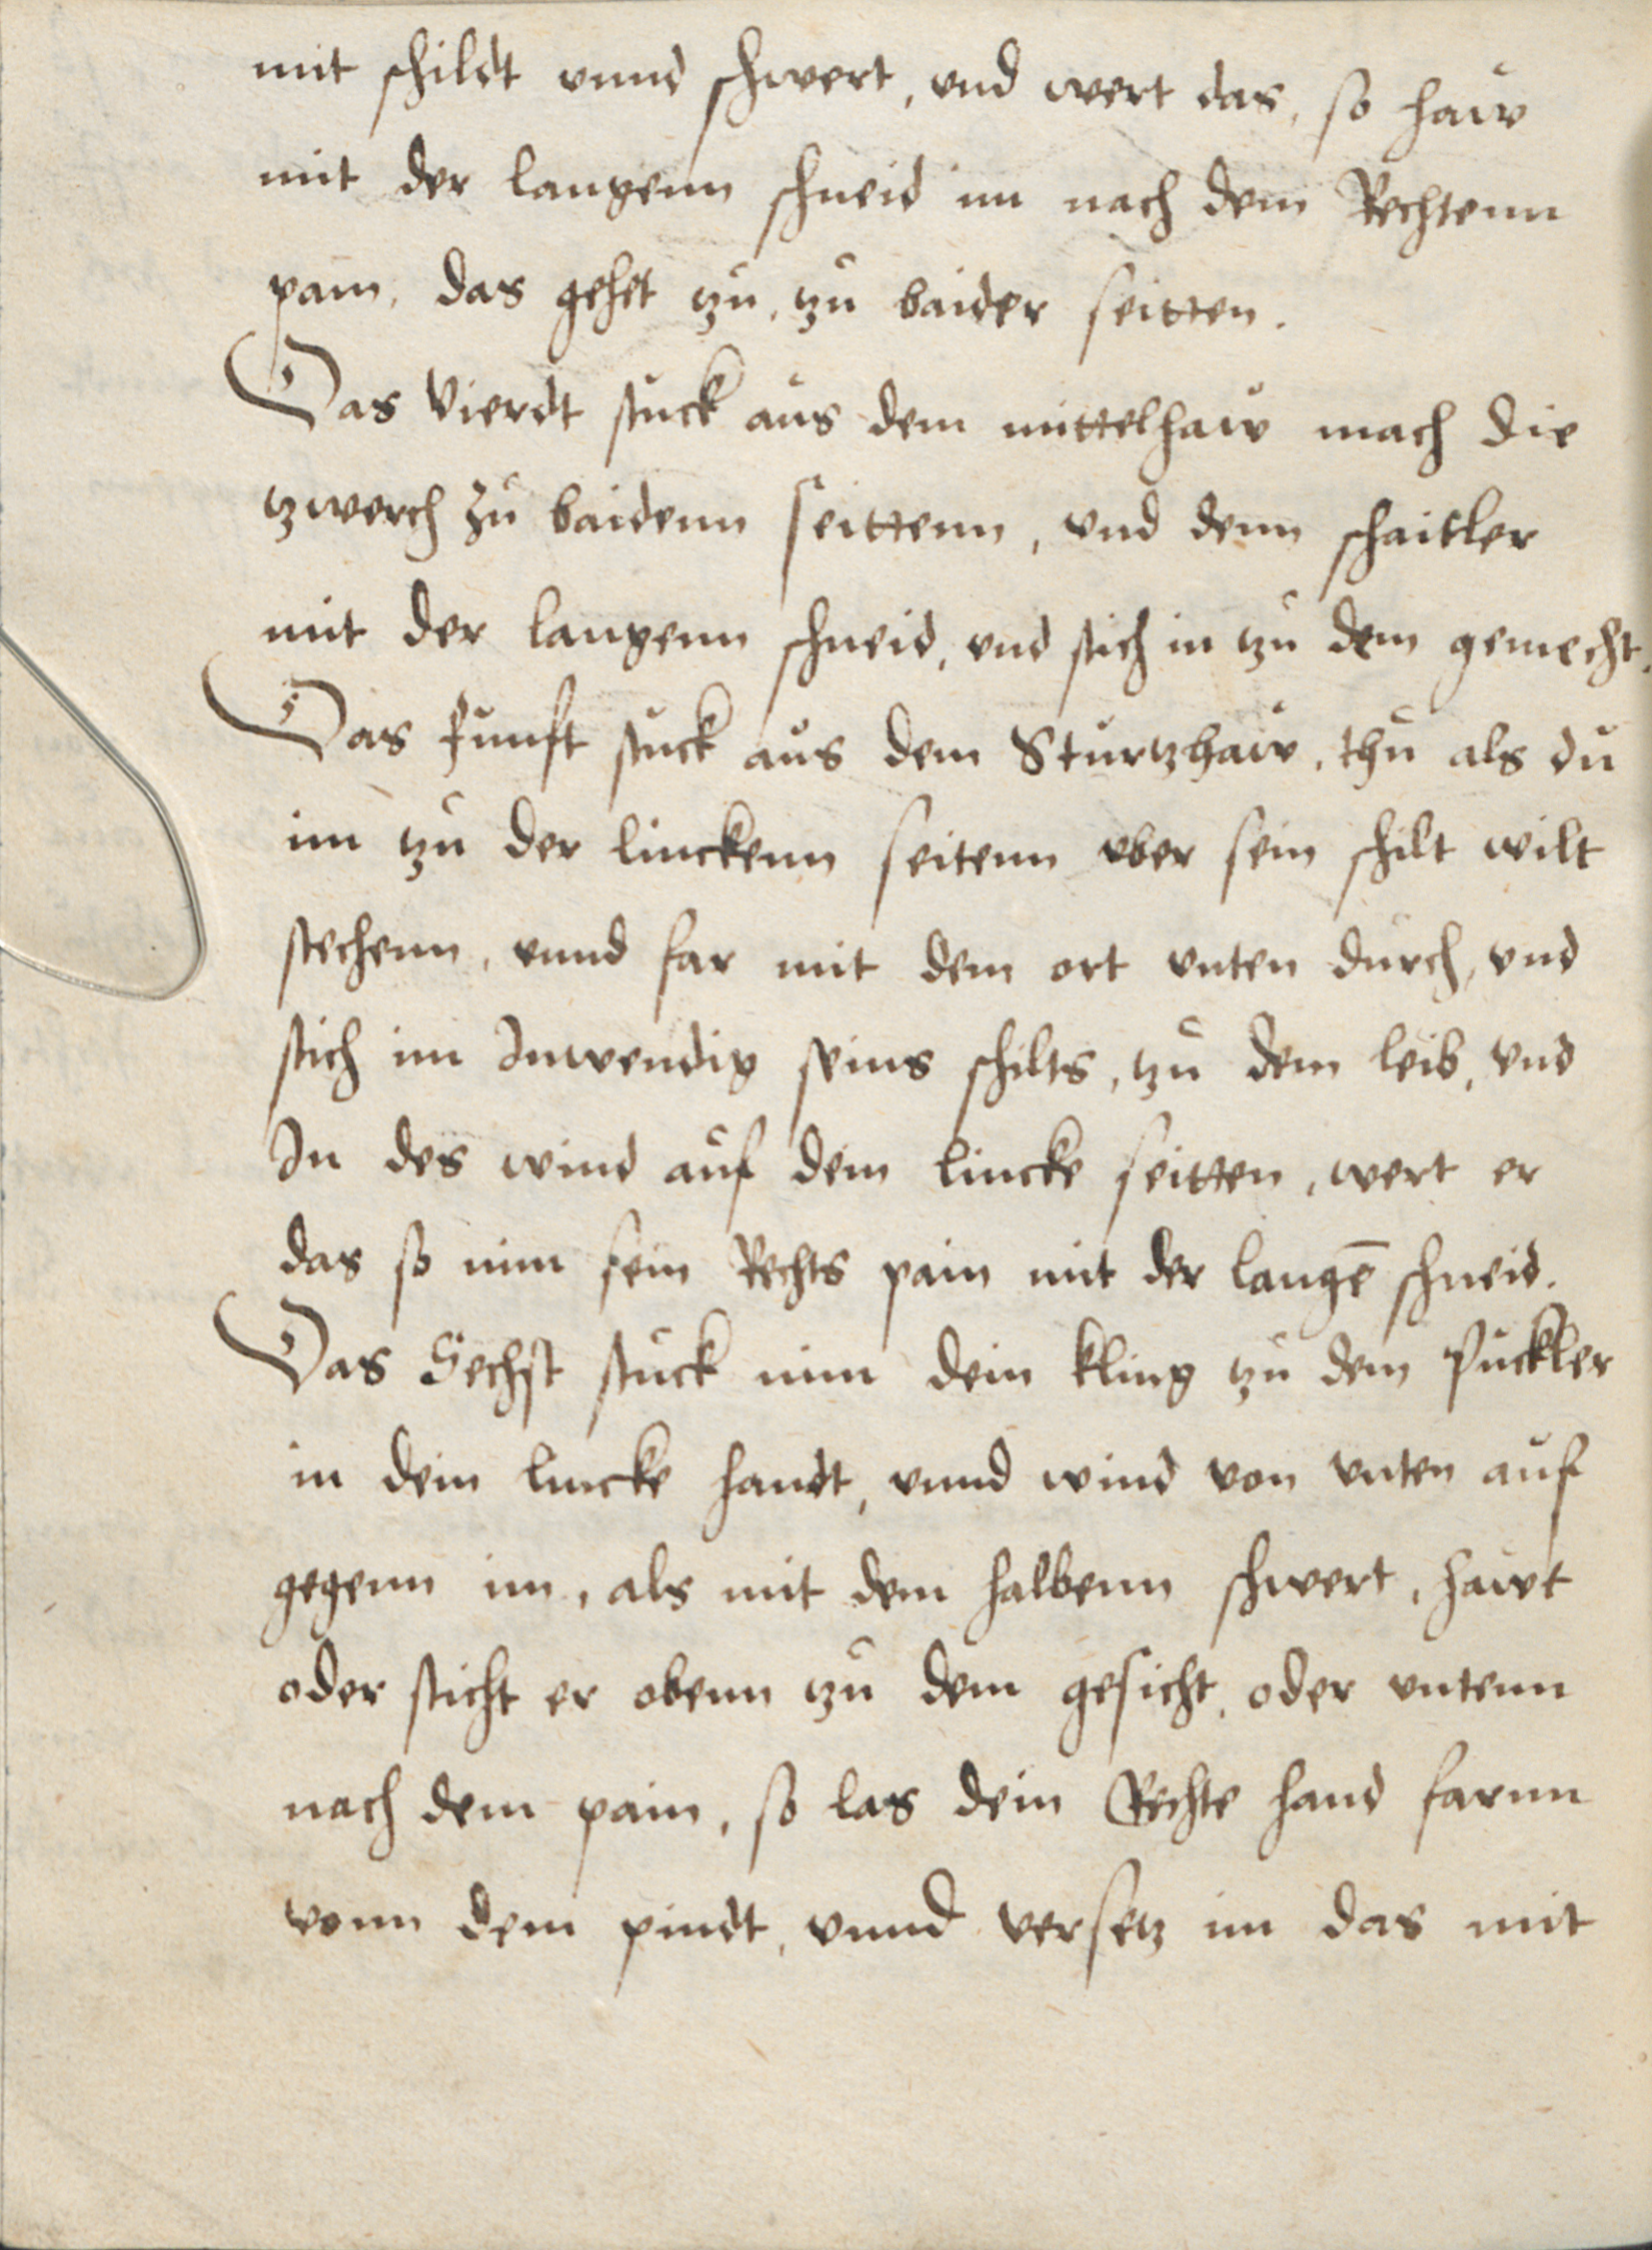 mit schildt vnnd schwert, vnd wert das, so haw
mit der langenn schneid im nach dem Rechtenn
pain, das gehet tzu, tzu baider seitten.
Das Vierdt stuck aus dem mittelhaw mach die
tzwerch zu baidenn seittenn, vnd denn schaitler
mit der langenn schneid, vnd stich in tzu dem gemecht.
Das funft stuck aus dem Sturtzhaw, thu als du
im tzu der linckenn seitenn vber sein schilt wilt
stechenn, vnnd far mit dem ort vnten durch, vnd
stich im Inwendig seins schilts, tzu dem leib, vnd
In des wind auf dein lincke seitten, wert er
das so nim sein Rechts pain mit der langē schneid.
Das Sechst stuck nim dein kling tzu dem Puckler
in dein lincke handt, vnnd wind von vnten auf
gegenn im, als mit dem halbenn schwert, hawt
oder sticht er obenn tzu dem gesicht, oder vntenn
nach dem pain, so las dein Rechte hand farnn
vonn dem pindt, vnnd versetz im das mit